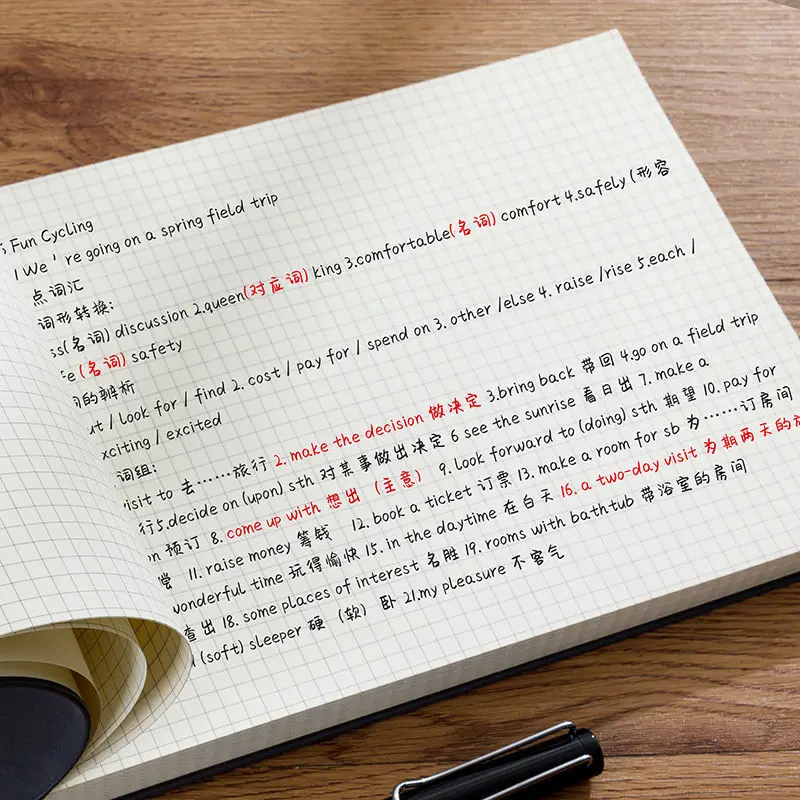 Fun Cycling
We're going on a spring field trip
点词汇
词形转换:
ss(名词) discussion 2.queen(对应词) king 3.comfortable(名词) comfort 4.safely (形容
e (名词) safety
的辨析
ut / look for / find 2. cost / pay for / spend on 3. other /else 4. raise /rise 5.each /
xciting / excited
词组:
visit to 去……旅行 2. make the decision 做决定 3.bring back 带回 4.go on a field trip
行5.decide on (upon) sth 对某事做出决定 6 see the sunrise 看日出 7. make a
n 预订 8. come up with 想出 (主意) 9. look forward to (doing) sth 期望 10. pay for
11. raise money 筹钱 12. book a ticket 订票 13. make a room for sb 为……订房间
wonderful time 玩得愉快 15. in the daytime 在白天 16. a two-day visit 为期两天的
查出 18. some places of interest 名胜 19. rooms with bathtub 带浴室的房间
(soft) sleeper 硬 (软) 卧 21.my pleasure 不客气